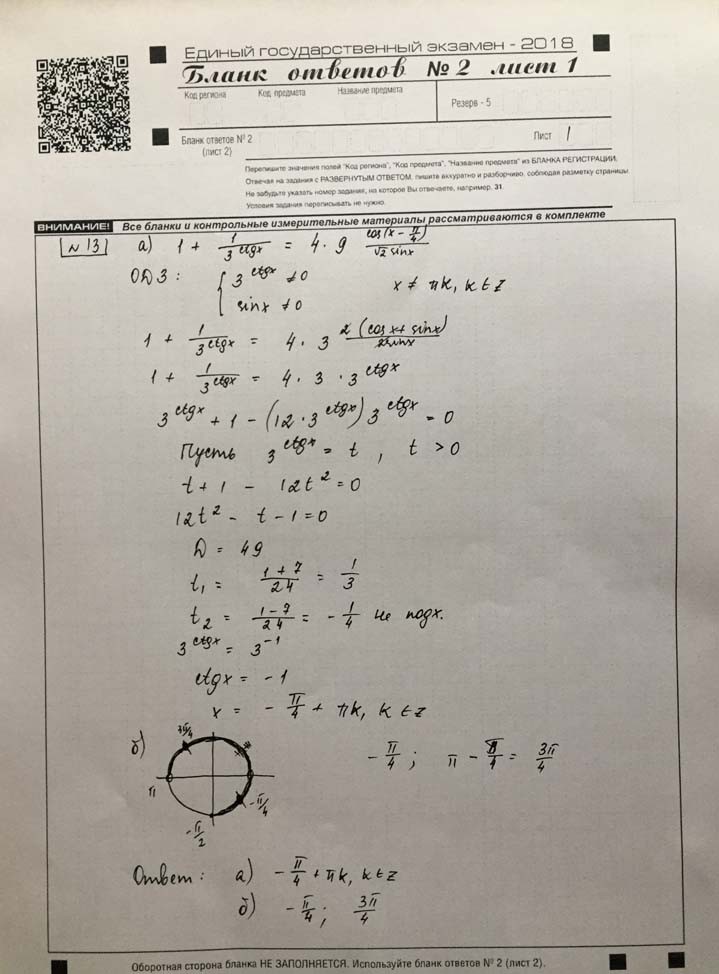 Единый государственный экзамен - 2018
Бланк ответов №2 лист 1
Код региона Код предмета Название предмета
Резерв - 5
Бланк ответов № 2 (лист 2)
Лист 1
Перепишите значения полей "Код региона", "Код предмета", "Название предмета" из БЛАНКА РЕГИСТРАЦИИ.
Отвечая на задания с РАЗВЕРНУТЫМ ОТВЕТОМ, пишите аккуратно и разборчиво, соблюдая разметку страницы.
Не забудьте указать номер задания, на которое Вы отвечаете, например, 31.
Условия задания переписывать не нужно.
ВНИМАНИЕ! Все бланки и контрольные измерительные материалы рассматриваются в комплекте
№13 а) 1 + 1/3^ctgx = 4 · 9^(cos(x - π/4)/(√2 sinx))
ОДЗ: { 3^ctgx ≠ 0
sinx ≠ 0 x ≠ πk, k∈Z
1 + 1/3^ctgx = 4 · 3^(2(cosx + sinx)/(2sinx))
1 + 1/3^ctgx = 4 · 3 · 3^ctgx
3^ctgx + 1 - (12 · 3^ctgx) 3^ctgx = 0
Пусть 3^ctgx = t, t > 0
t + 1 - 12t² = 0
12t² - t - 1 = 0
D = 49
t₁ = (1+7)/24 = 1/3
t₂ = (1-7)/24 = -1/4 не подх.
3^ctgx = 3^-1
ctgx = -1
x = -π/4 + πk, k∈Z
б) 3π/4 π -π/2 -π/4
-π/4; π - π/4 = 3π/4
Ответ: а) -π/4 + πk, k∈Z
б) -π/4; 3π/4
Оборотная сторона бланка НЕ ЗАПОЛНЯЕТСЯ. Используйте бланк ответов № 2 (лист 2).